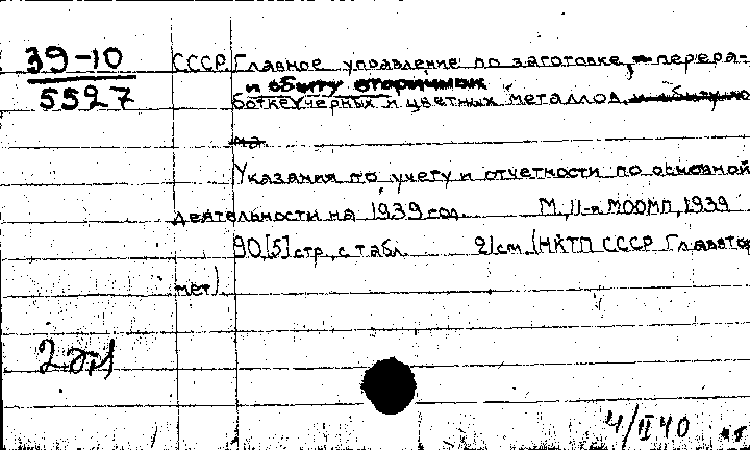 39-10
5527
СССР. Главное управление по заготовке, перера-
и сбыту вторичных
ботке черных и цветных металлов
Указания по учету и отчетности по основной
деятельности на 1939 год. М., 1939
90 [5] стр. с табл. 21 см. (НКТП СССР Главвтор
мет).
4/II 40